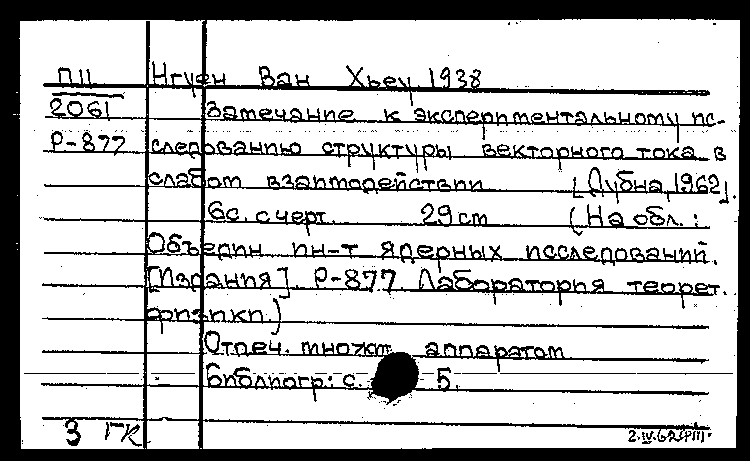 П11 Нгуен Ван Хьеу, 1938
2061 Замечание к экспериментальному ис-
Р-877 следованию структуры векторного тока в
слабом взаимодействии [Дубна, 1962].
6с. с черт. 29 см (На обл.:
Объедин ин-т ядерных исследований.
[Издания]. Р-877. Лаборатория теорет.
физики.)
Отпеч. множит аппаратом
Библиогр: с. 5.
3 ГК 2.IV.62